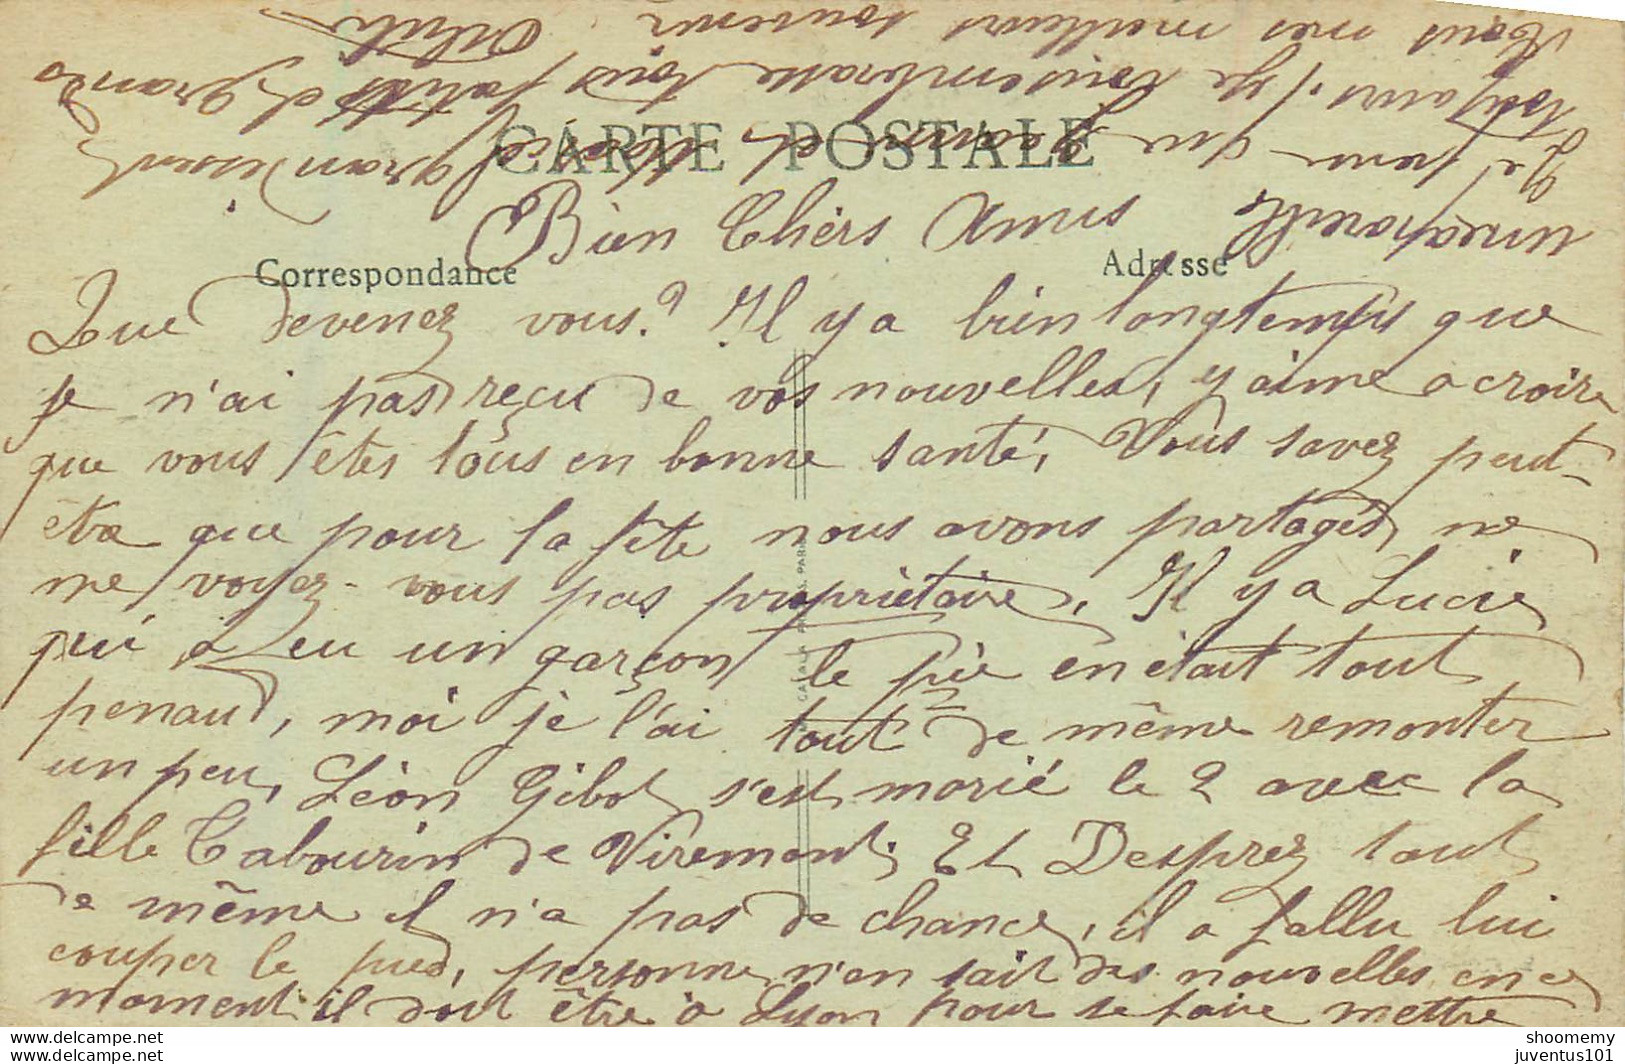 CARTE POSTALE
Correspondance
Adresse
Bien Chers Amis
Que devenez vous? Il y a bien longtemps que
je n'ai pas reçu de vos nouvelles, y aime a croire
que vous êtes tous en bonne santé, Vous savez peut-
être que pour la fête nous avons partagés, ne
me voyez-vous pas propriétaire, Il y a Lucie
qui a eu un garçon, le père en était tout
penaud, moi je l'ai tout de même remonter
un peu, Léon Gibot s'est marié le 2 avec la
fille Tabourin de Viremont, Et Desprez tout
de même il n'a pas de chance, il a fallu lui
couper le pied, personne n'en sait des nouvelles en ce
moment il doit être à Lyon pour se faire mettre
un appareille
Le jeune et Marcel grandissent
toujours. Je vous embrasse tous petits et grands
Tous mes meilleurs souvenir
shoomemy
juventus101
juventus101